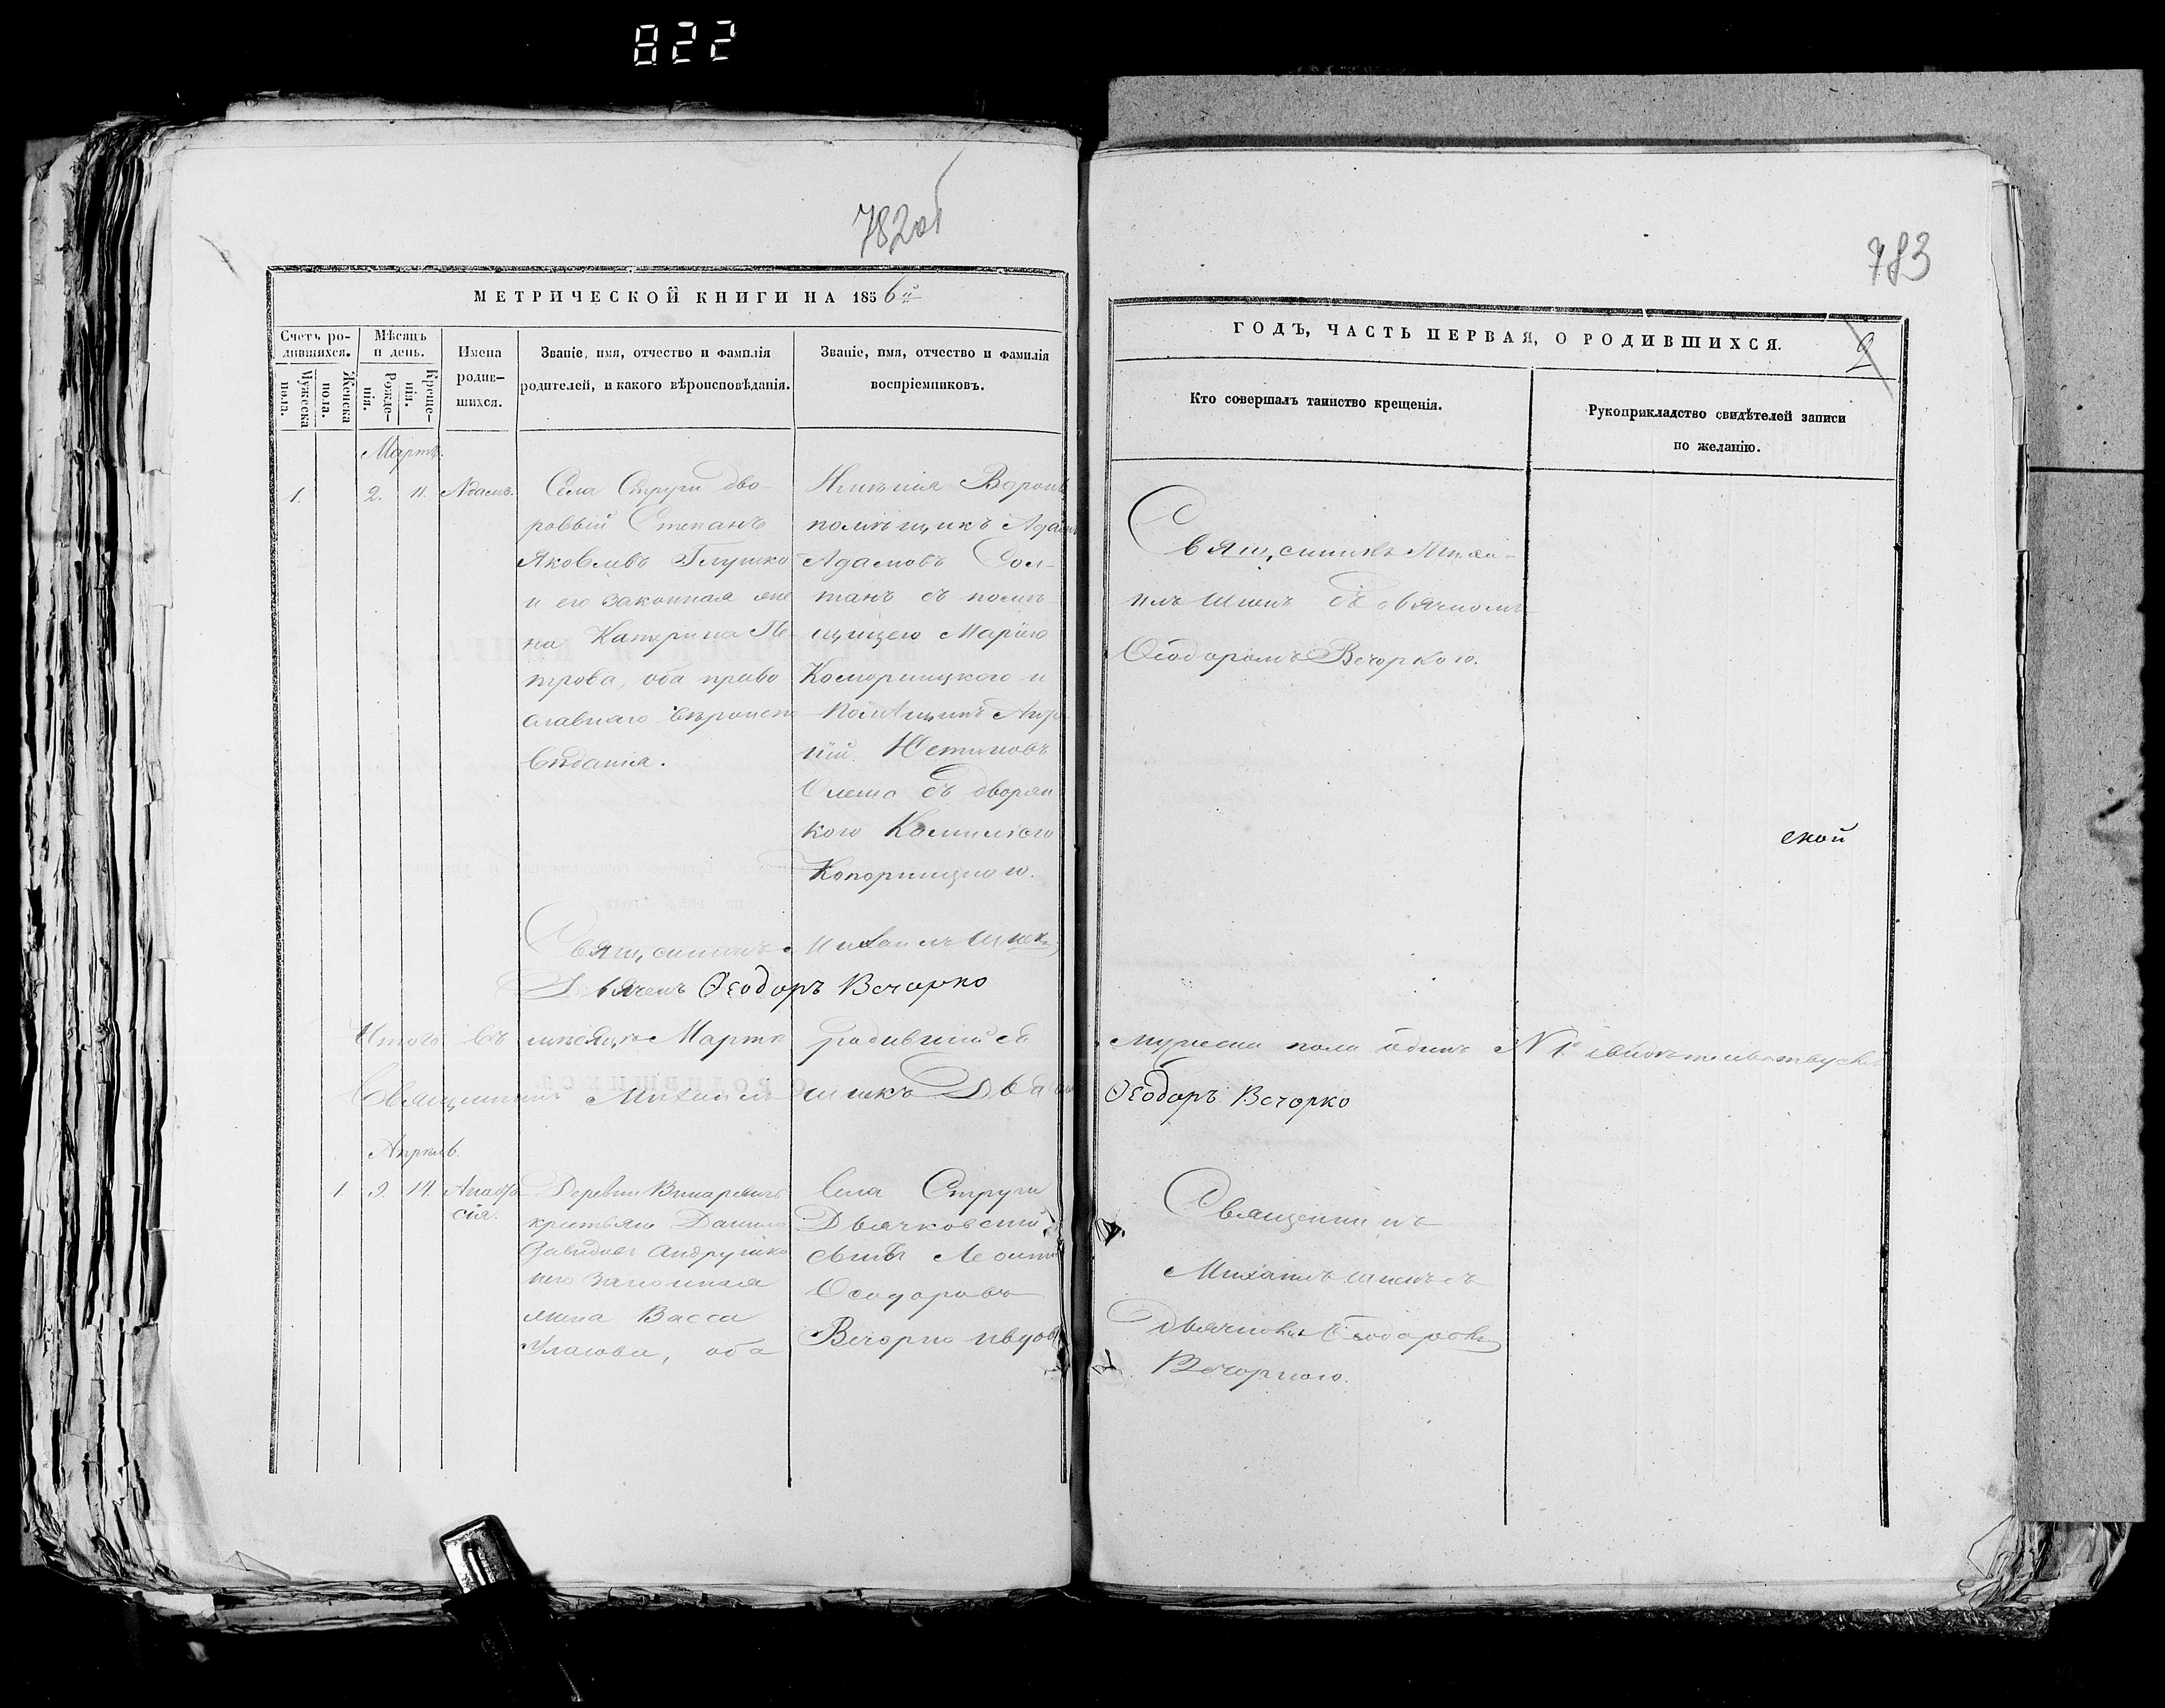 822
782об
МЕТРИЧЕСКОЙ КНИГИ НА 1856й
Счетъ ро-
дившихся.
Мужеска
пола.
Женска
пола.
Мѣсяцъ
и день.
Рожде-
нія.
Креще-
нія.
Имена
родив-
шихся.
Званіе, имя, отчество и фамилія
родителей, и какого вѣроисповѣданія.
Званіе, имя, отчество и фамилія
воспріемниковъ.
Мартъ.
1. 2. 11. Адамъ.
Села Струги дво-
ровый Степанъ
Яковлевъ Глушко
и его законная же
на Катерина Пе-
трова, оба право
славнаго вѣроиспо
вѣданія.
Имѣнія
помѣщикъ Адамъ
Адамовъ Сол-
танъ съ помѣ
щицею Маріею
и
Помѣщикъ
съ дворян
кою
Священникъ Михаилъ
Дьячекъ Ѳеодоръ Вечорко
Итого въ мѣсяцѣ Мартѣ родившийся
Священникъ Михаилъ
Апрѣль.
1 9. 14. Анаста
сія.
Деревни
крестьян Данило
Давидовъ Андрушко
и его законная
жена Васса
Уласова, оба
Села Струги
Дьячковскій
сынъ Леонтій
Ѳеодоровъ
Вечорко и вдова
783
ГОДЪ, ЧАСТЬ ПЕРВАЯ, О РОДИВШИХСЯ.
2
Кто совершалъ таинство крещенія.
Рукоприкладство свидѣтелей записи
по желанію.
Священникъ Миха-
илъ съ дьячкомъ
Ѳеодоромъ Вечоркою.
ской
мужеска пола одинъ N 1.
Ѳеодоръ Вечорко
Священникъ
Михаилъ съ
дьячкомъ Ѳеодоромъ
Вечоркою.